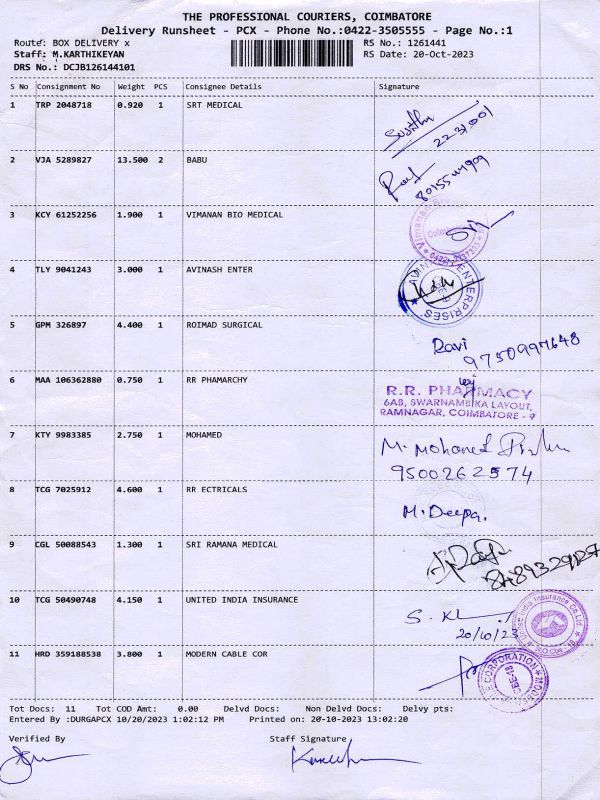 THE PROFESSIONAL COURIERS, COIMBATORE
Delivery Runsheet - PCX - Phone No.:0422-3505555 - Page No.:1
Route: BOX DELIVERY x RS No.: 1261441
Staff: M.KARTHIKEYAN RS Date: 20-Oct-2023
DRS No.: DCJB126144101
S No Consignment No Weight PCS Consignee Details Signature
1 TRP 2048718 0.920 1 SRT MEDICAL
2 VJA 5289827 13.500 2 BABU
3 KCY 61252256 1.900 1 VIMANAN BIO MEDICAL
4 TLY 9041243 3.000 1 AVINASH ENTER
ENTERPRISES
5 GPM 326897 4.400 1 ROIMAD SURGICAL
Ravi
9750997648
6 MAA 106362880 0.750 1 RR PHAMARCHY
R.R. PHARMACY
6AB, SWARNAMBIKA LAYOUT,
RAMNAGAR, COIMBATORE - 9
7 KTY 9983385 2.750 1 MOHAMED
M. Mohamed
9500262574
8 TCG 7025912 4.600 1 RR ECTRICALS
M. Deepa.
9 CGL 50088543 1.300 1 SRI RAMANA MEDICAL
10 TCG 50490748 4.150 1 UNITED INDIA INSURANCE
United India Insurance Co.Ltd.
20/10/23
11 HRD 359188538 3.800 1 MODERN CABLE COR
CORPORATION
Tot Docs: 11 Tot COD Amt: 0.00 Delvd Docs: Non Delvd Docs: Delvy pts:
Entered By :DURGAPCX 10/20/2023 1:02:12 PM Printed on: 20-10-2023 13:02:20
Verified By Staff Signature